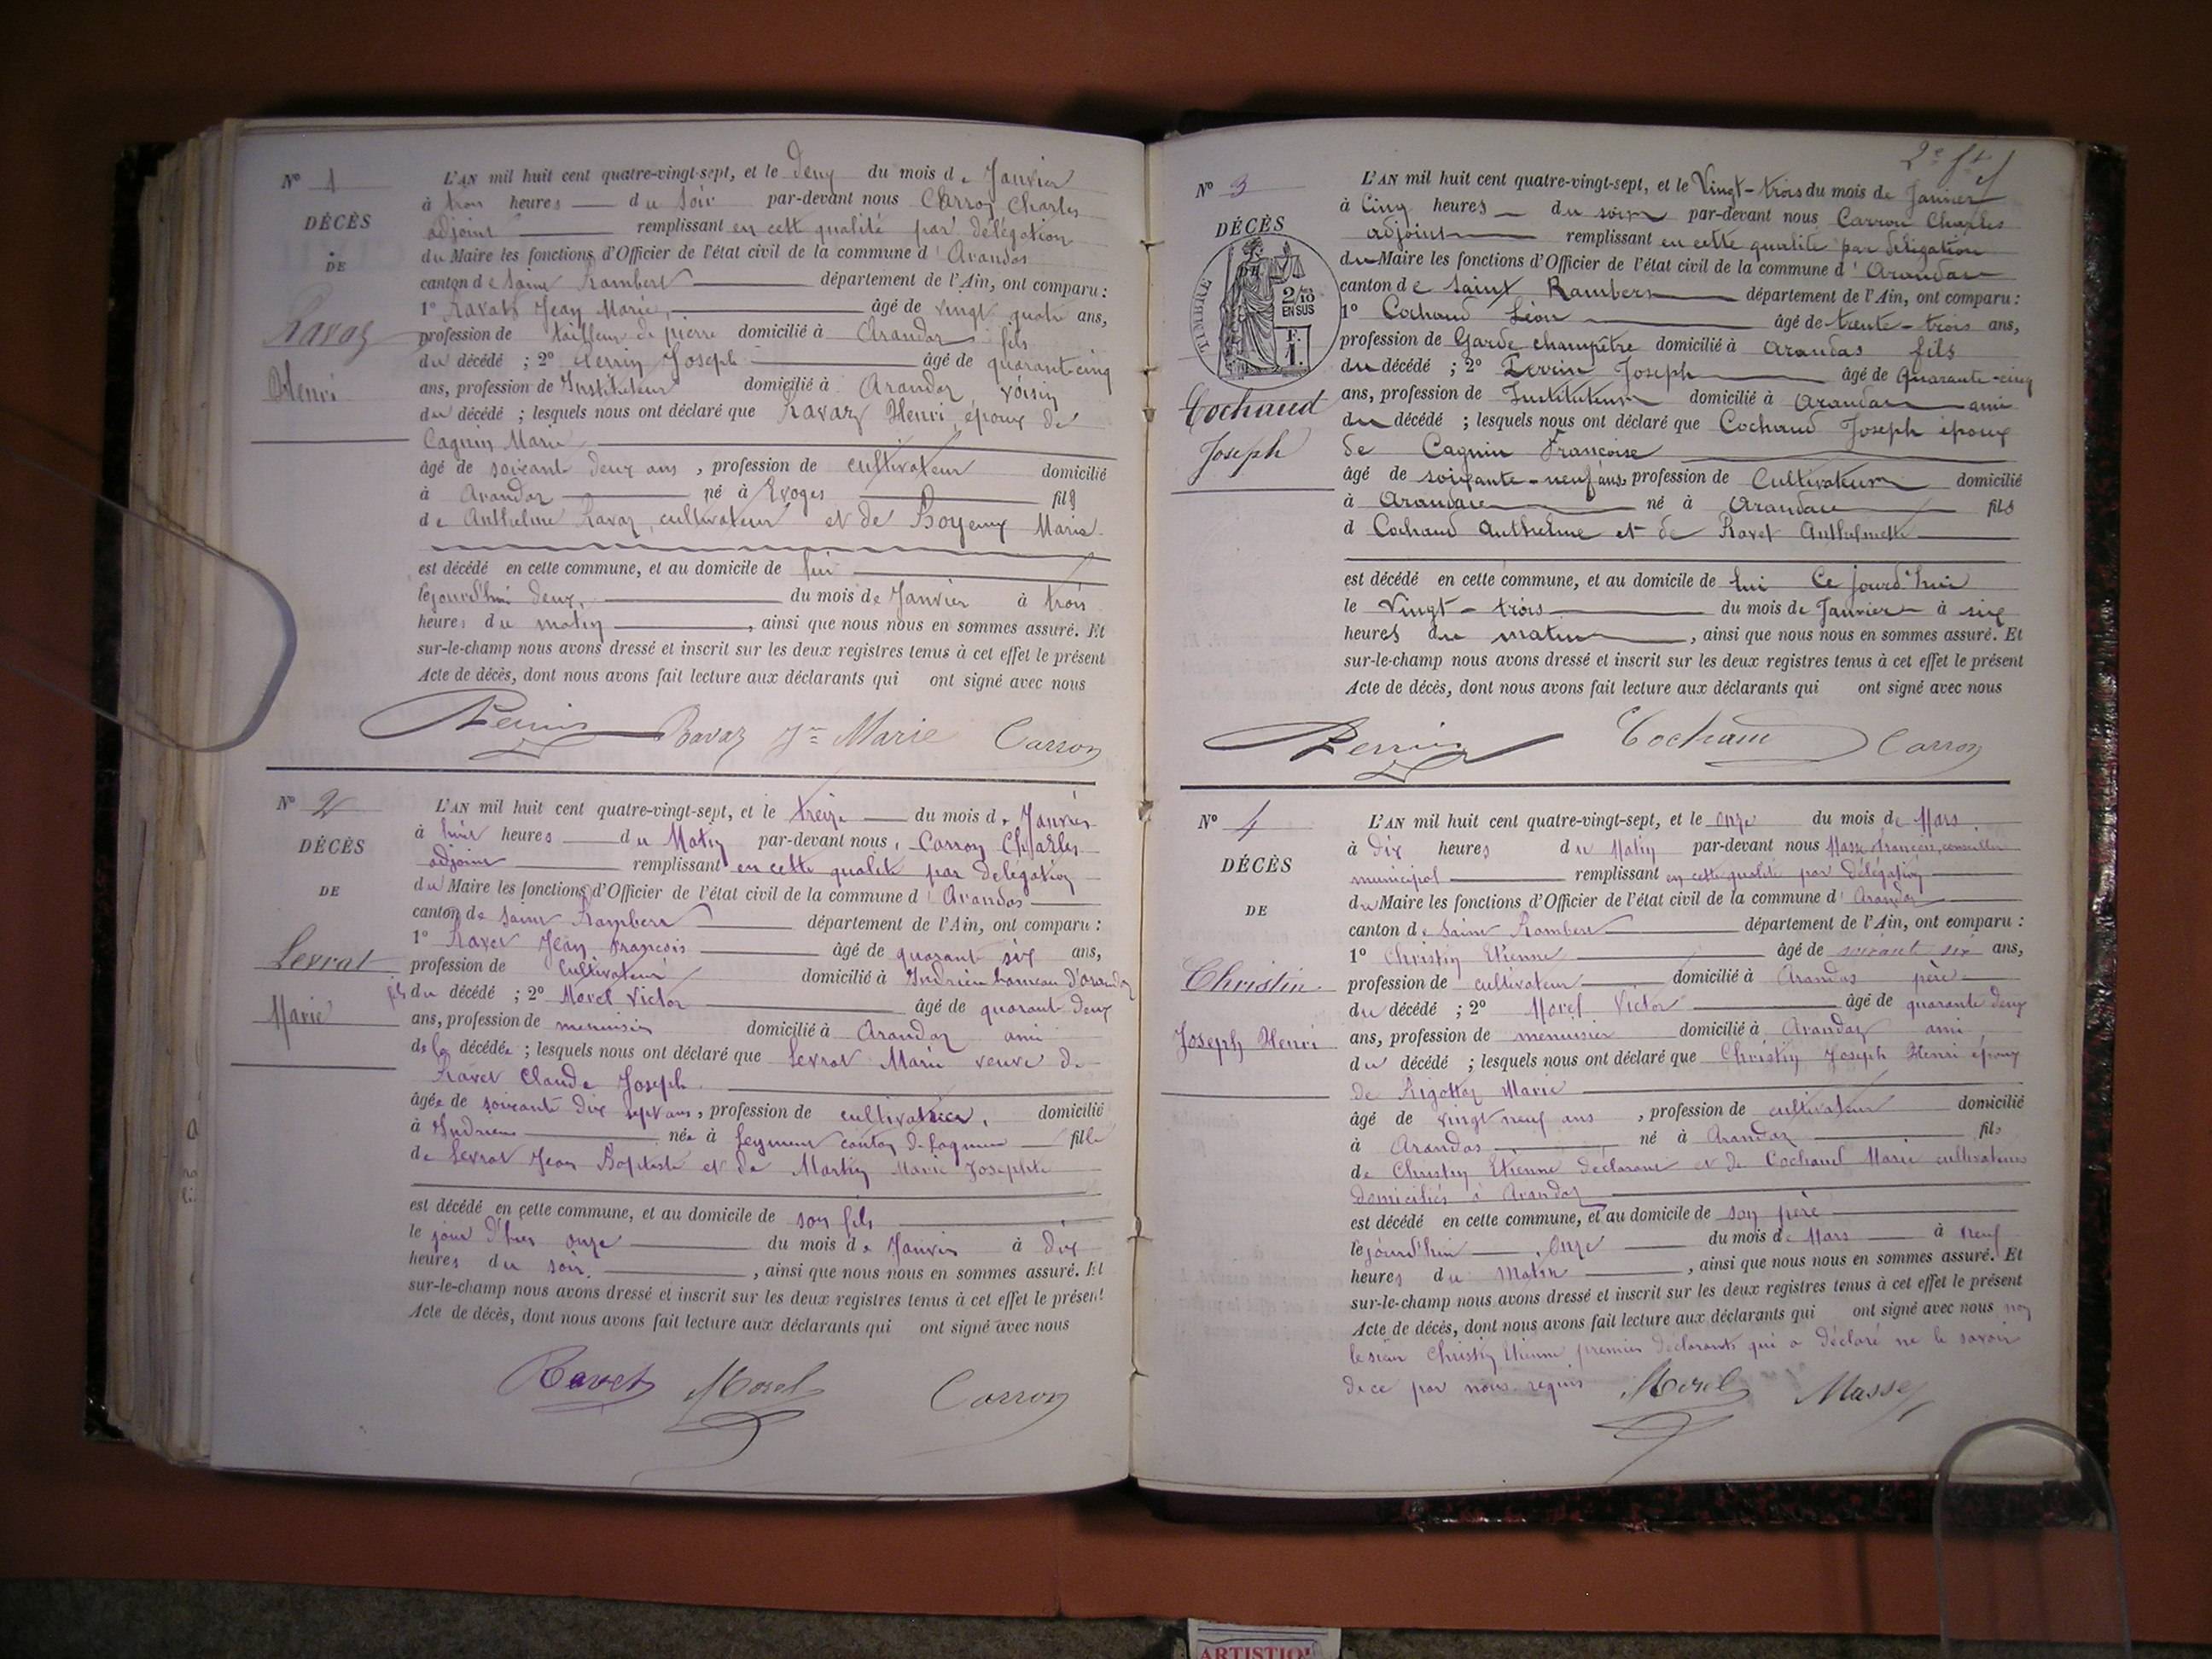 N° 1
DÉCÈS
DE
Ravaz
Henri
L'AN mil huit cent quatre-vingt-sept, et le deux du mois de Janvier
à trois heures du soir par-devant nous Carron Charles
adjoint remplissant en cette qualité par délégation
du Maire les fonctions d'Officier de l'état civil de la commune d'Arandas
canton de Saint Rambert département de l'Ain, ont comparu :
1° Ravaz Jean Marie, âgé de vingt quatre ans,
profession de tailleur de pierre domicilié à Arandas fils
du décédé ; 2° Perrin Joseph âgé de quarant-cinq
ans, profession de Instituteur domicilié à Arandas voisin
du décédé ; lesquels nous ont déclaré que Ravaz Henri, époux de
Cagnin Marie
âgé de soixante deux ans, profession de cultivateur domicilié
à Arandas né à Evoges fils
de Anthelme Ravaz, cultivateur et de Boyeux Marie
est décédé en cette commune, et au domicile de lui
lejourd'hui deux, du mois de Janvier à trois
heures du matin, ainsi que nous nous en sommes assuré. Et
sur-le-champ nous avons dressé et inscrit sur les deux registres tenus à cet effet le présent
Acte de décès, dont nous avons fait lecture aux déclarants qui ont signé avec nous
Perrin Ravaz Jn Marie Carron
N° 2
DÉCÈS
DE
Levrat
Marie
L'AN mil huit cent quatre-vingt-sept, et le treize du mois de Janvier
à huit heures du Matin par-devant nous, Carron Charles
adjoint remplissant en cette qualité par délégation
du Maire les fonctions d'Officier de l'état civil de la commune d'Arandas
canton de Saint Rambert département de l'Ain, ont comparu :
1° Ravet Jean François âgé de quarant six ans,
profession de Cultivateur domicilié à Indrieu hameau d'Arandas
fils du décédé ; 2° Morel Victor âgé de quarant deux
ans, profession de menuisier domicilié à Arandas ami
de la décédée ; lesquels nous ont déclaré que Levrat Marie veuve de
Ravet Claude Joseph
âgée de soixante dix sept ans, profession de cultivatrice, domicilié
à Indrieu née à Leyment canton de Lagnieu fille
de Levrat Jean Baptiste et de Martin Marie Josephte
est décédé en cette commune, et au domicile de son fils
le jour d'hier onze du mois de Janvier à dix
heures du soir, ainsi que nous nous en sommes assuré. Et
sur-le-champ nous avons dressé et inscrit sur les deux registres tenus à cet effet le présent
Acte de décès, dont nous avons fait lecture aux déclarants qui ont signé avec nous
Ravet Morel Carron
2e
N° 3
DÉCÈS
DE
TIMBRE
2/10
EN SUS
F.
1.
Cochaud
Joseph
L'AN mil huit cent quatre-vingt-sept, et le Vingt-trois du mois de Janvier
à Cinq heures du soir par-devant nous Carron Charles
adjoint remplissant en cette qualité par délégation
du Maire les fonctions d'Officier de l'état civil de la commune d'Arandas
canton de Saint Rambert département de l'Ain, ont comparu :
1° Cochaud Léon âgé de trente-trois ans,
profession de Garde champêtre domicilié à Arandas fils
du décédé ; 2° Perrin Joseph âgé de Quarante-cinq
ans, profession de Instituteur domicilié à Arandas ami
du décédé ; lesquels nous ont déclaré que Cochaud Joseph époux
de Cagnin Françoise
âgé de soixante-neuf ans, profession de Cultivateur domicilié
à Arandas né à Arandas fils
d Cochaud Anthelme et de Ravet Anthelmette
est décédé en cette commune, et au domicile de lui Ce jourd'hui
le vingt-trois du mois de Janvier à six
heures du matin, ainsi que nous nous en sommes assuré. Et
sur-le-champ nous avons dressé et inscrit sur les deux registres tenus à cet effet le présent
Acte de décès, dont nous avons fait lecture aux déclarants qui ont signé avec nous
Perrin Cochaud Carron
N° 4
DÉCÈS
DE
Christin
Joseph Henri
L'AN mil huit cent quatre-vingt-sept, et le onze du mois de Mars
à dix heures du Matin par-devant nous Masse François, conseiller
municipal remplissant en cette qualité par délégation
du Maire les fonctions d'Officier de l'état civil de la commune d'Arandas
canton de Saint Rambert département de l'Ain, ont comparu :
1° Christin Etienne âgé de soixant six ans,
profession de cultivateur domicilié à Arandas père
du décédé ; 2° Morel Victor âgé de quarante deux
ans, profession de menuisier domicilié à Arandas ami
du décédé ; lesquels nous ont déclaré que Christin Joseph Henri époux
de Rigottaz Marie
âgé de vingt neuf ans, profession de cultivateur domicilié
à Arandas né à Arandas fils
de Christin Etienne déclarant et de Cochaud Marie cultivateurs
domiciliés à Arandas
est décédé en cette commune, et au domicile de son père
lejourd'hui onze du mois de Mars à neuf
heures du Matin, ainsi que nous nous en sommes assuré. Et
sur-le-champ nous avons dressé et inscrit sur les deux registres tenus à cet effet le présent
Acte de décès, dont nous avons fait lecture aux déclarants qui ont signé avec nous non
le sieur Christin Etienne, premier déclarant qui a déclaré ne le savoir
de ce par nous requis Morel Masse
ARTISTIQ